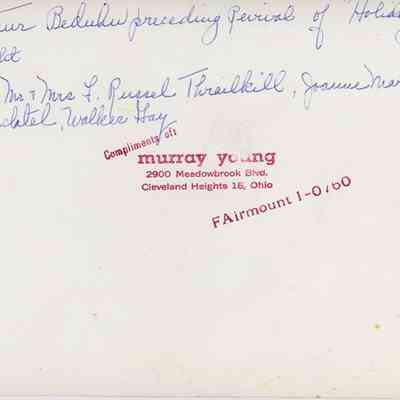 Beduhn preceding Revival of "Holiday
Mr & Mrs F. Russel Thrailkill, Joanne Mar
Walker Gay
Compliments of:
murray young
2900 Meadowbrook Blvd.
Cleveland Heights 18, Ohio
FAirmount 1-0760